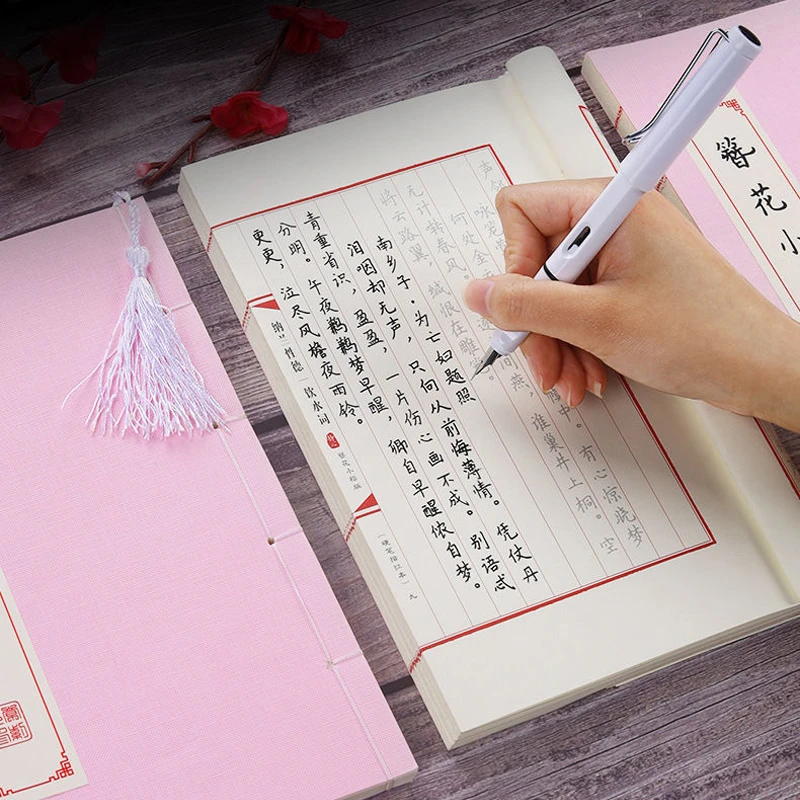 簪花小
咏笼莺
何处金 中。有心惊晓梦
无计转春风 逐 间燕，谁巢井上桐。空
将云路翼，缄恨在雕笼。
南乡子·为亡妇题照
泪咽却无声，只向从前悔薄情。凭仗丹
青重省识，盈盈，一片伤心画不成。别语忒
分明。午夜鹣鹣梦早醒，卿自早醒侬自梦。
更更，泣尽风檐夜雨铃。
纳兰性德 饮水词 簪花小楷版 （硬笔描红本） 九